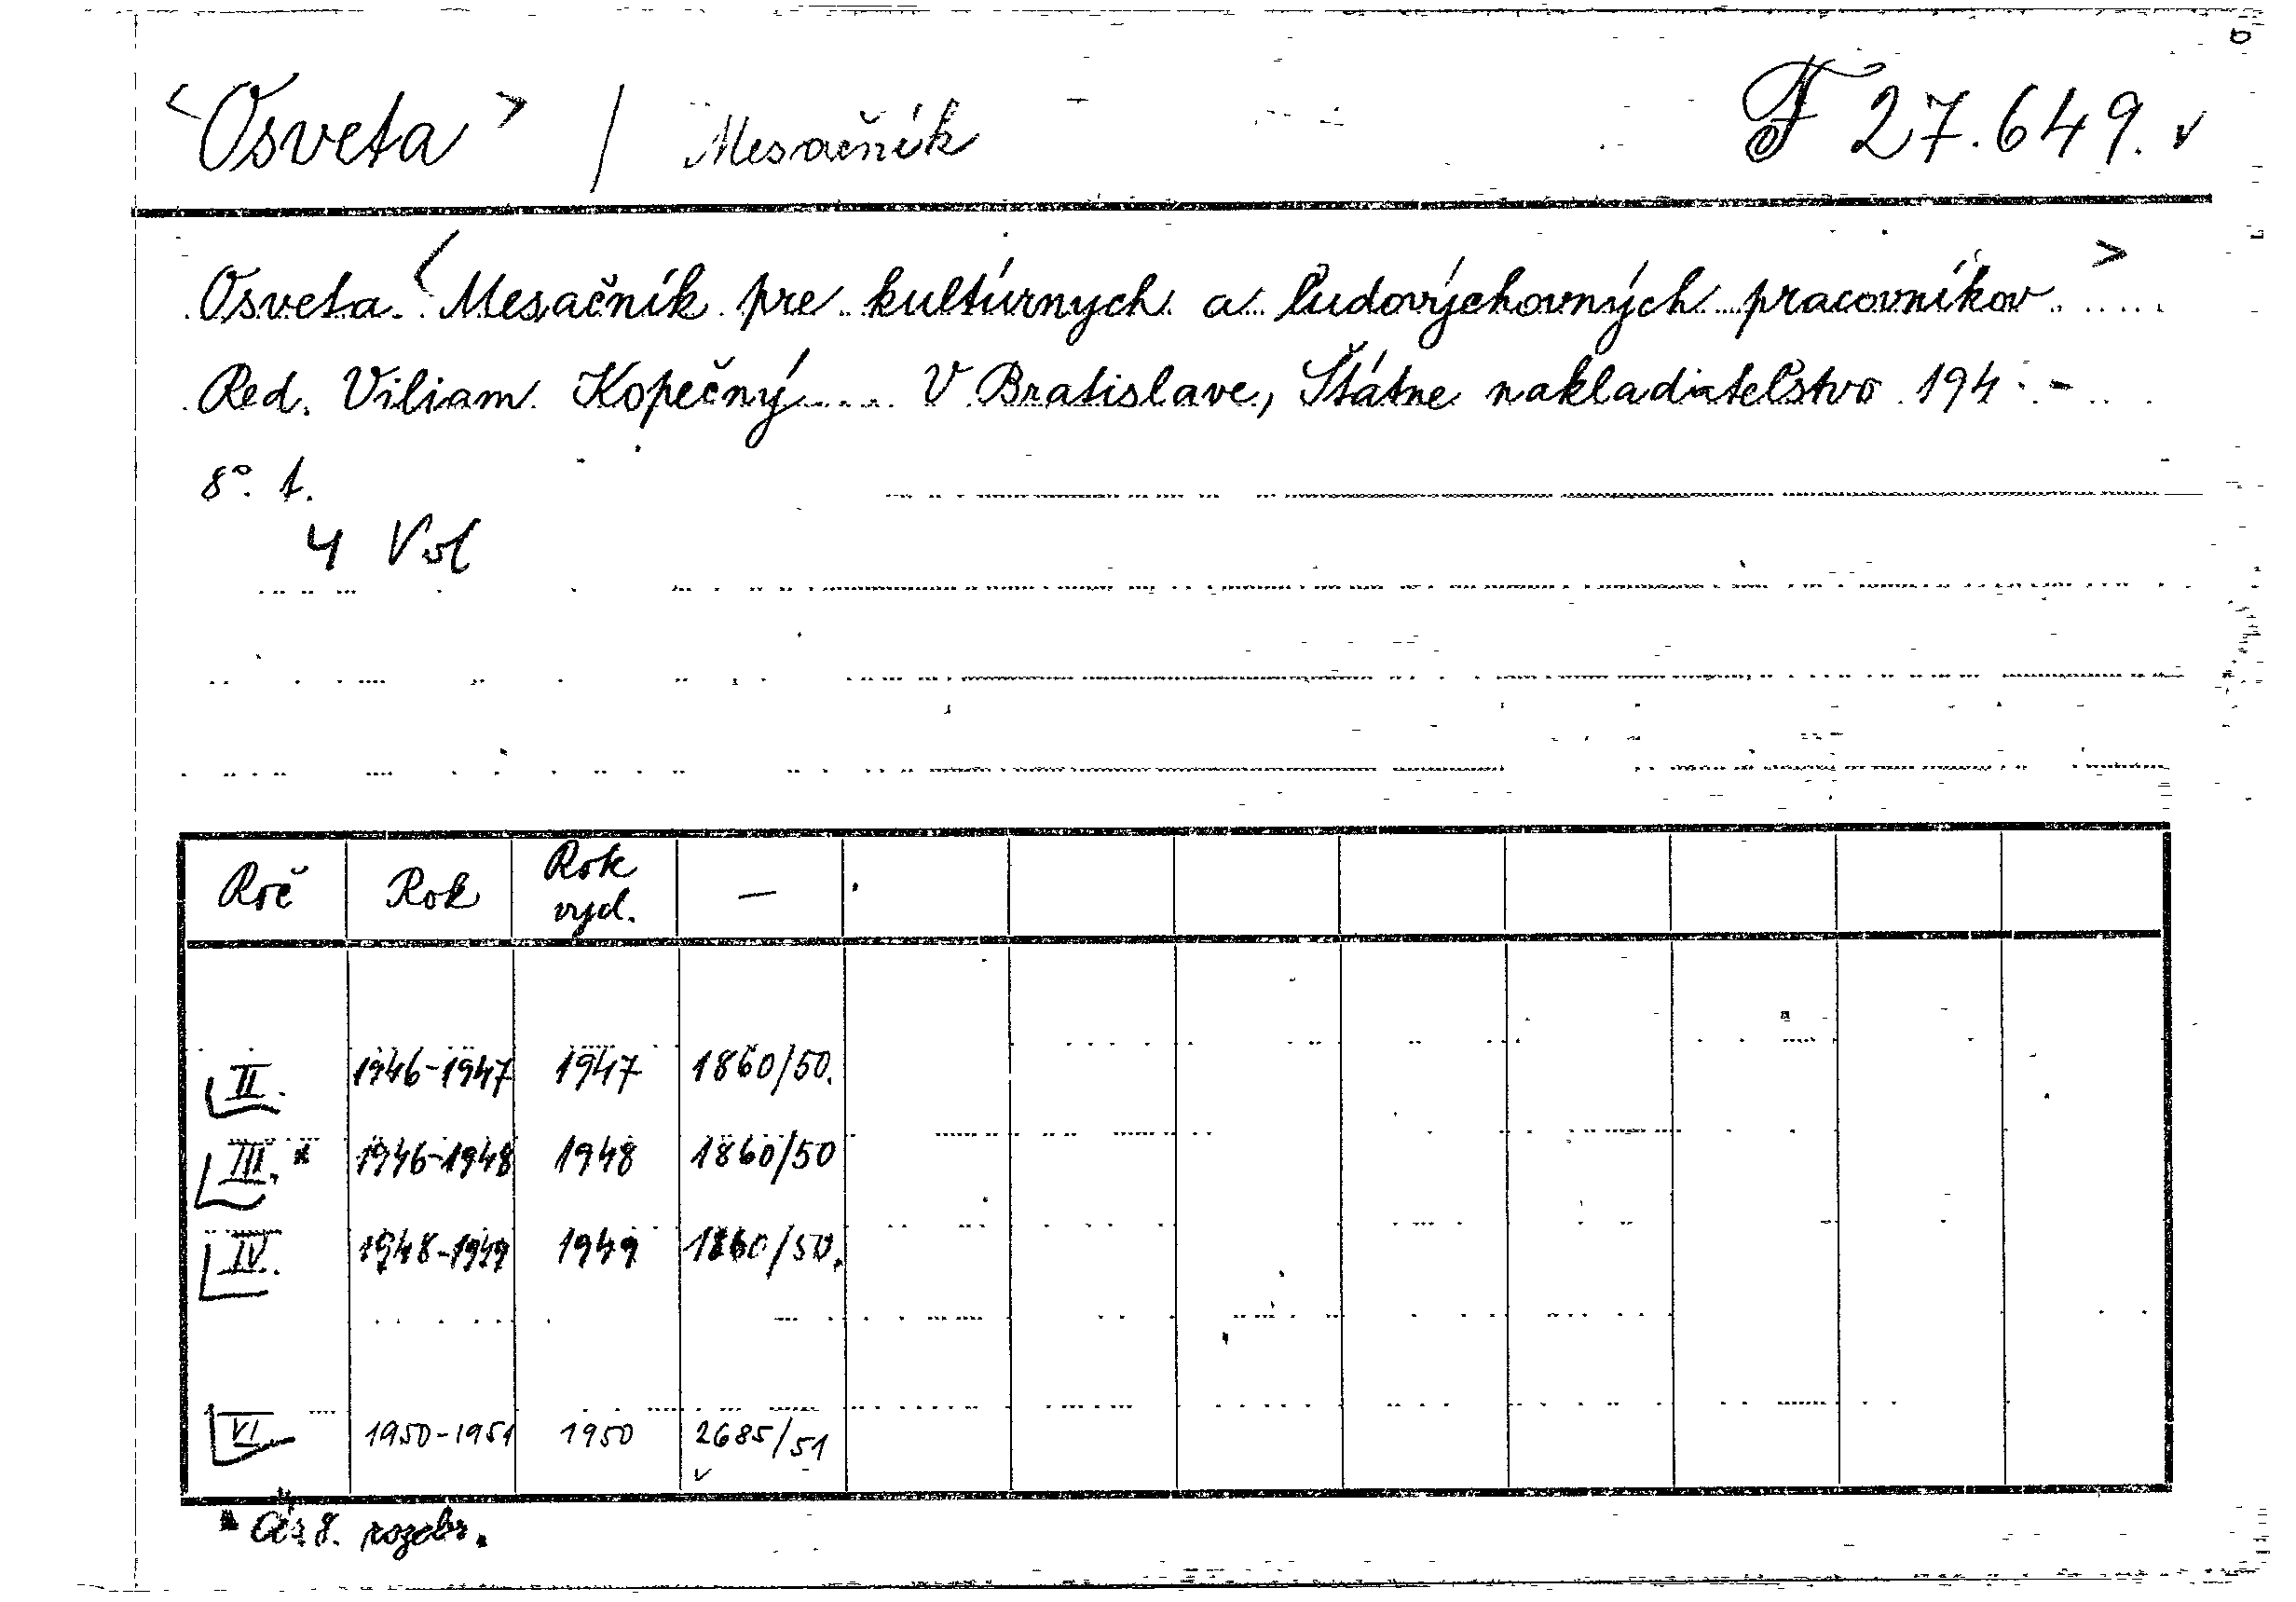 <Osveta> / Mesačník F 27.649. v
Osveta <Mesačník pre kultúrnych a ľudovýchovných pracovníkov>
Red. Viliam Kopečný .... V Bratislave, Štátne nakladateľstvo 194.-
8°. t.
4 Vol
Roč Rok Rok vyd. —
II. 1946-1947 1947 1860/50.
III.* 1946-1948 1948 1860/50
IV. 1948-1949 1949 1860/50.
VI. 1950-1951 1950 2685/51
v
* Čís 8. rozebr.